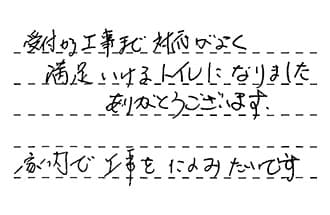 受付から工事まで対応がよく
満足いけるトイレになりました
ありがとうございます。
家内で工事をによみたいです